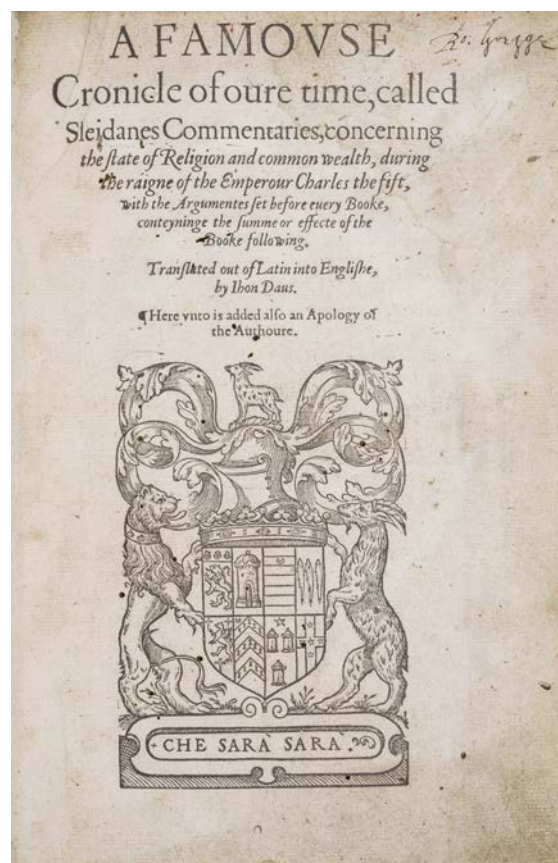 A FAMOVSE
Cronicle of oure time, called
Sleidanes Commentaries, concerning
the state of Religion and common wealth, during
the raigne of the Emperour Charles the fift,
with the Argumentes set before euery Booke,
conteyninge the summe or effecte of the
Booke following.
Translated out of Latin into Englishe,
by Ihon Daus.
¶ Here vnto is added also an Apology of
the Authoure.
CHE SARA SARA.